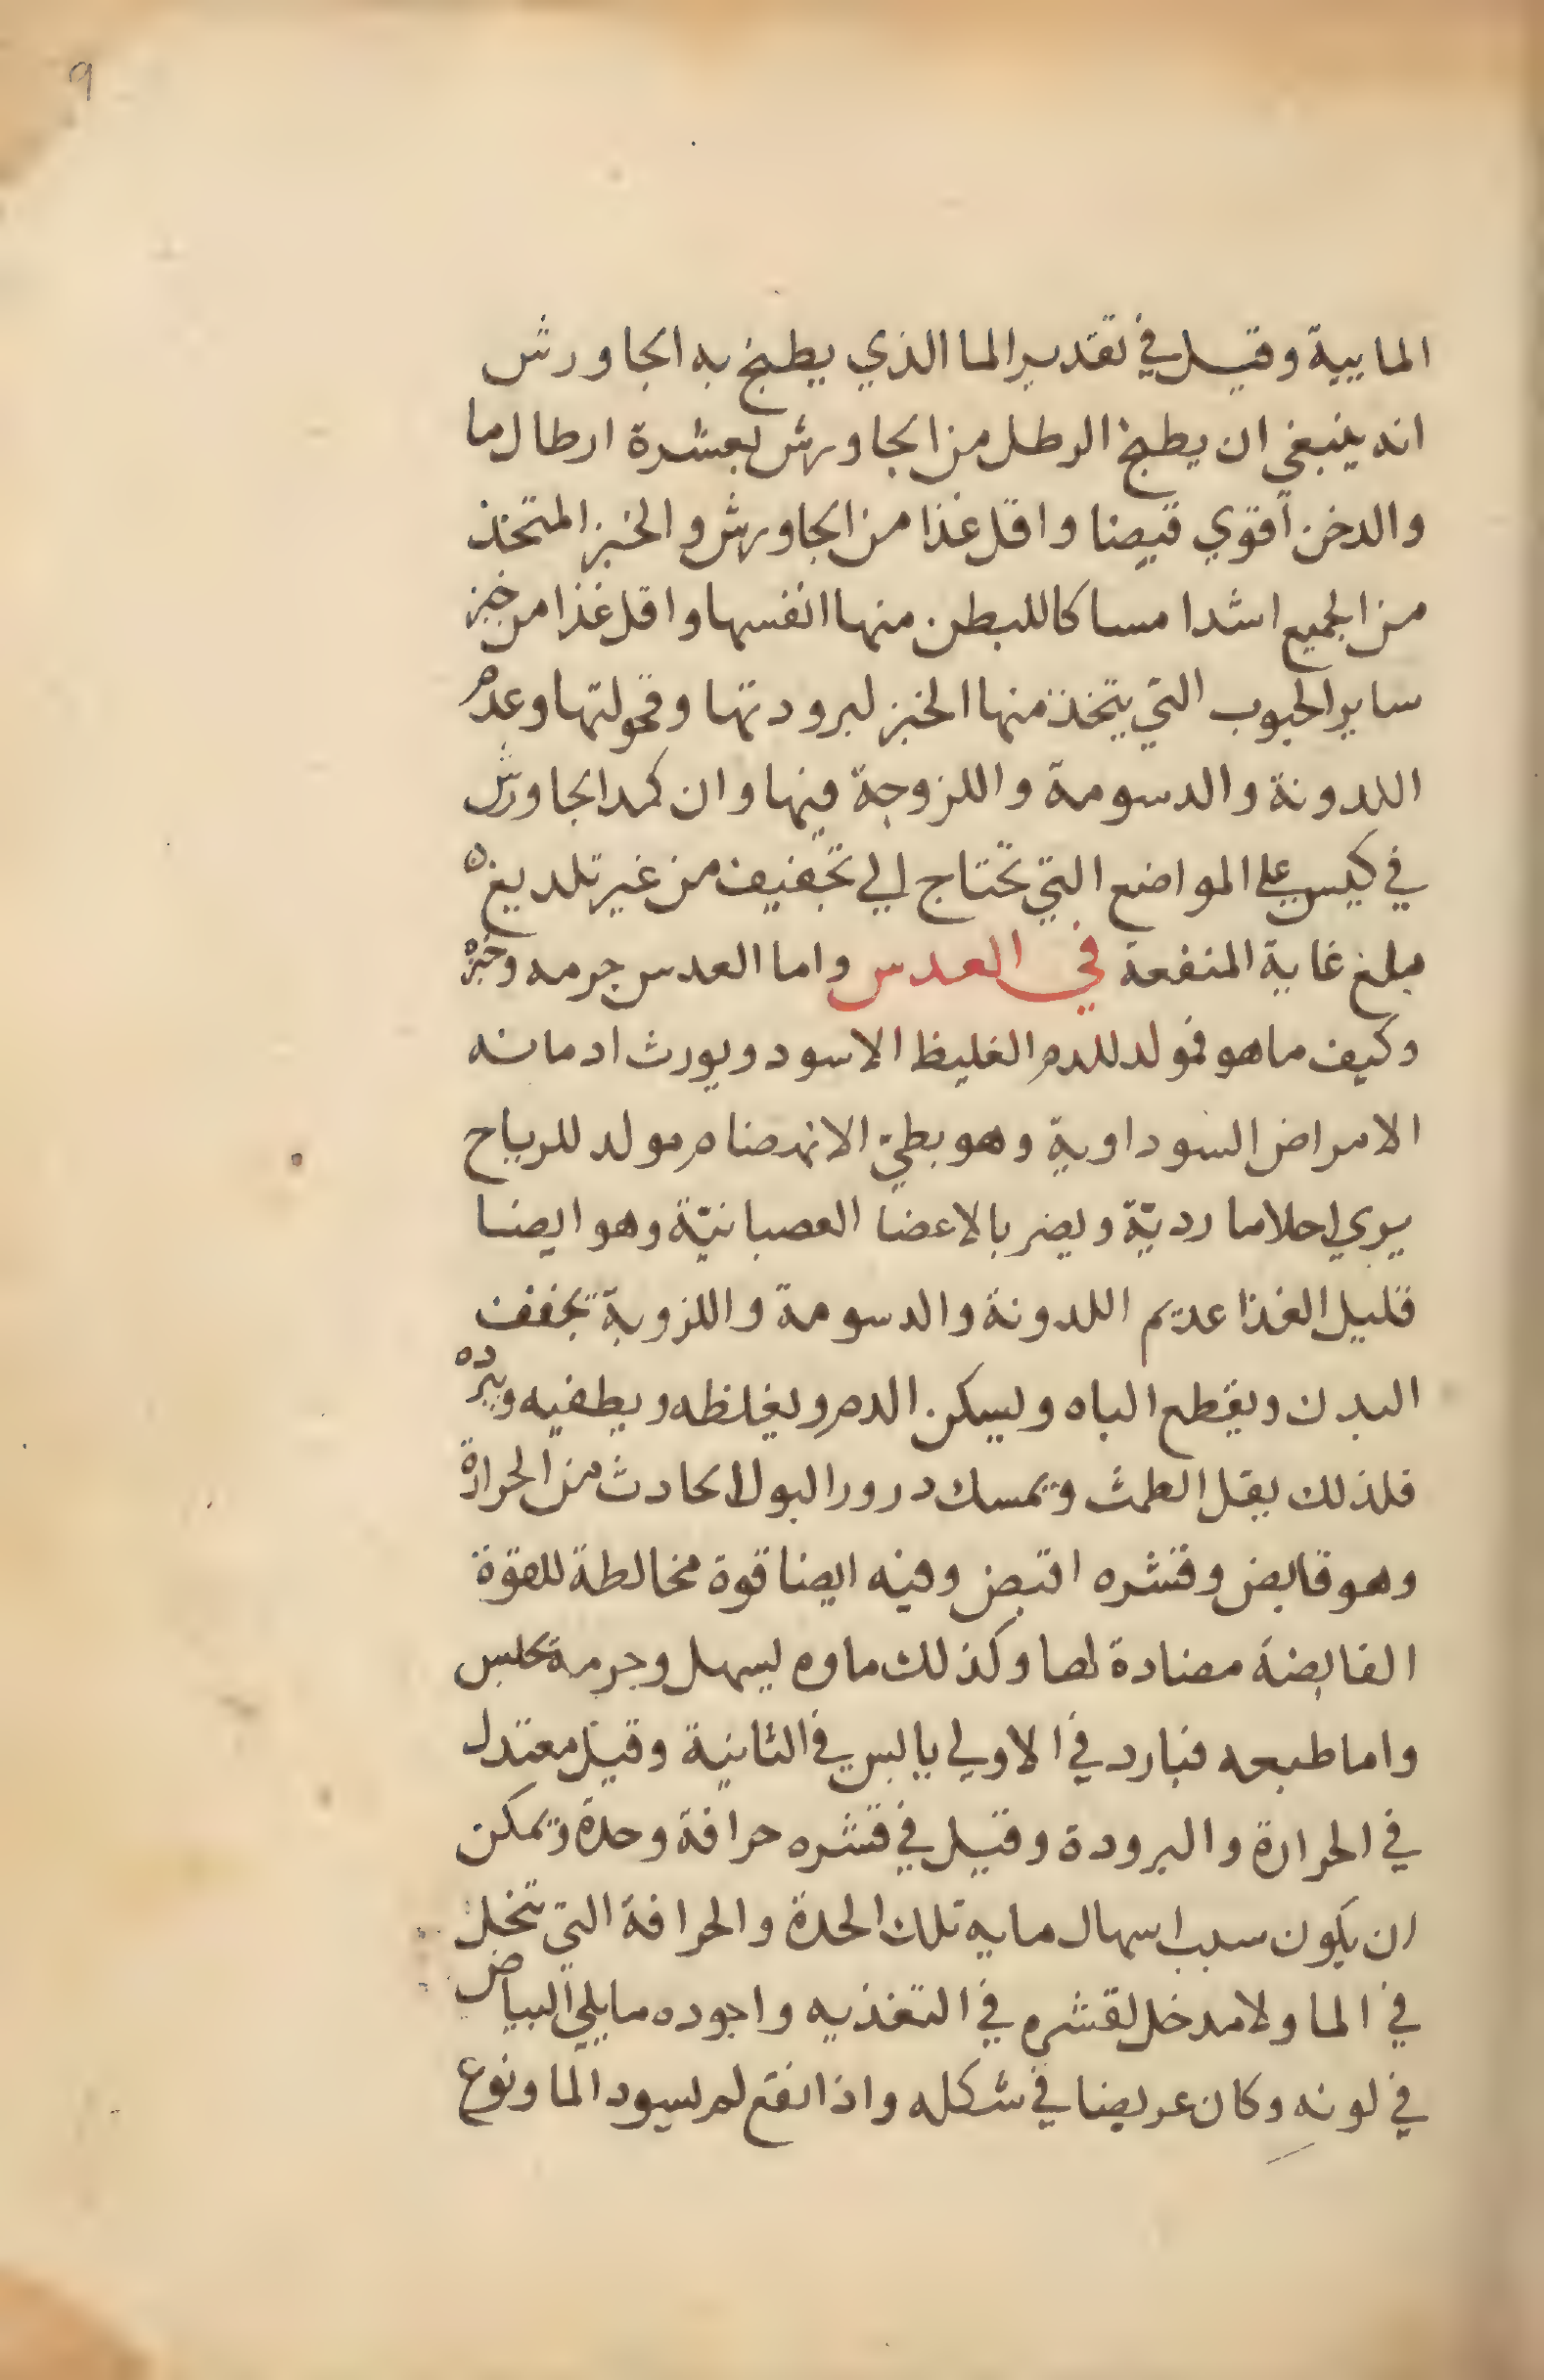 ٩
المايية وقيل في تقدير الما الذي يطبخ به الجاورش
انه ينبغي ان يطبخ الرطل من الجاورش بعشرة ارطال ما
والدخن اقوي قبضا واقل غذا من الجاورش والخبز المتخذ
من الجميع اشد امساكا للبطن منها انفسها واقل غذا من خبز
ساير الحبوب التي يتخذ منها الخبز لبرودتها وقحولتها وعدم
اللدونة والدسومة واللزوجة فيها وان كمد الجاورش
في كيس علي المواضع التي تحتاج الي تجفيف من غير تلديغ ه
مبلغ غاية المنفعة في العدس واما العدس جرمه وخبزه
وكيف ما هو فمولد للدم الغليظ الاسود ويورث ادمانه
الامراض السوداوية وهو بطيّ الانهضام مولد للرياح
يري احلاما رديّة ويضر بالاعضا العصبانيّة وهو ايضا
قليل الغذا عديم اللدونة والدسومة واللزوبة تجفف
البدن ويقطع الباه ويسكن الدم ويغلظه ويطفيه ويبرده
فلذلك يقل الطمث ويمسك درور البول الحادث من الحرارة
وهو قابض وقشره اقبض وفيه ايضا قوة مخالطة للقوة
القابضة مضادة لها وكذلك ماوه يسهل وجرمه يحبس
واما طبعه فبارد في الاولي يابس في الثانية وقيل معتدل
في الحرارة والبرودة وقيل في قشره حرافة وحدة ويمكن
ان يكون سبب اسهال مايه تلك الحدة والحرافة التي تنحل
في الما ولا مدخل لقشره في التغذيه واجوده ما يلي البياض
في لونه وكان عريضا في شكله واذا نقع لم يسود الما ونوع